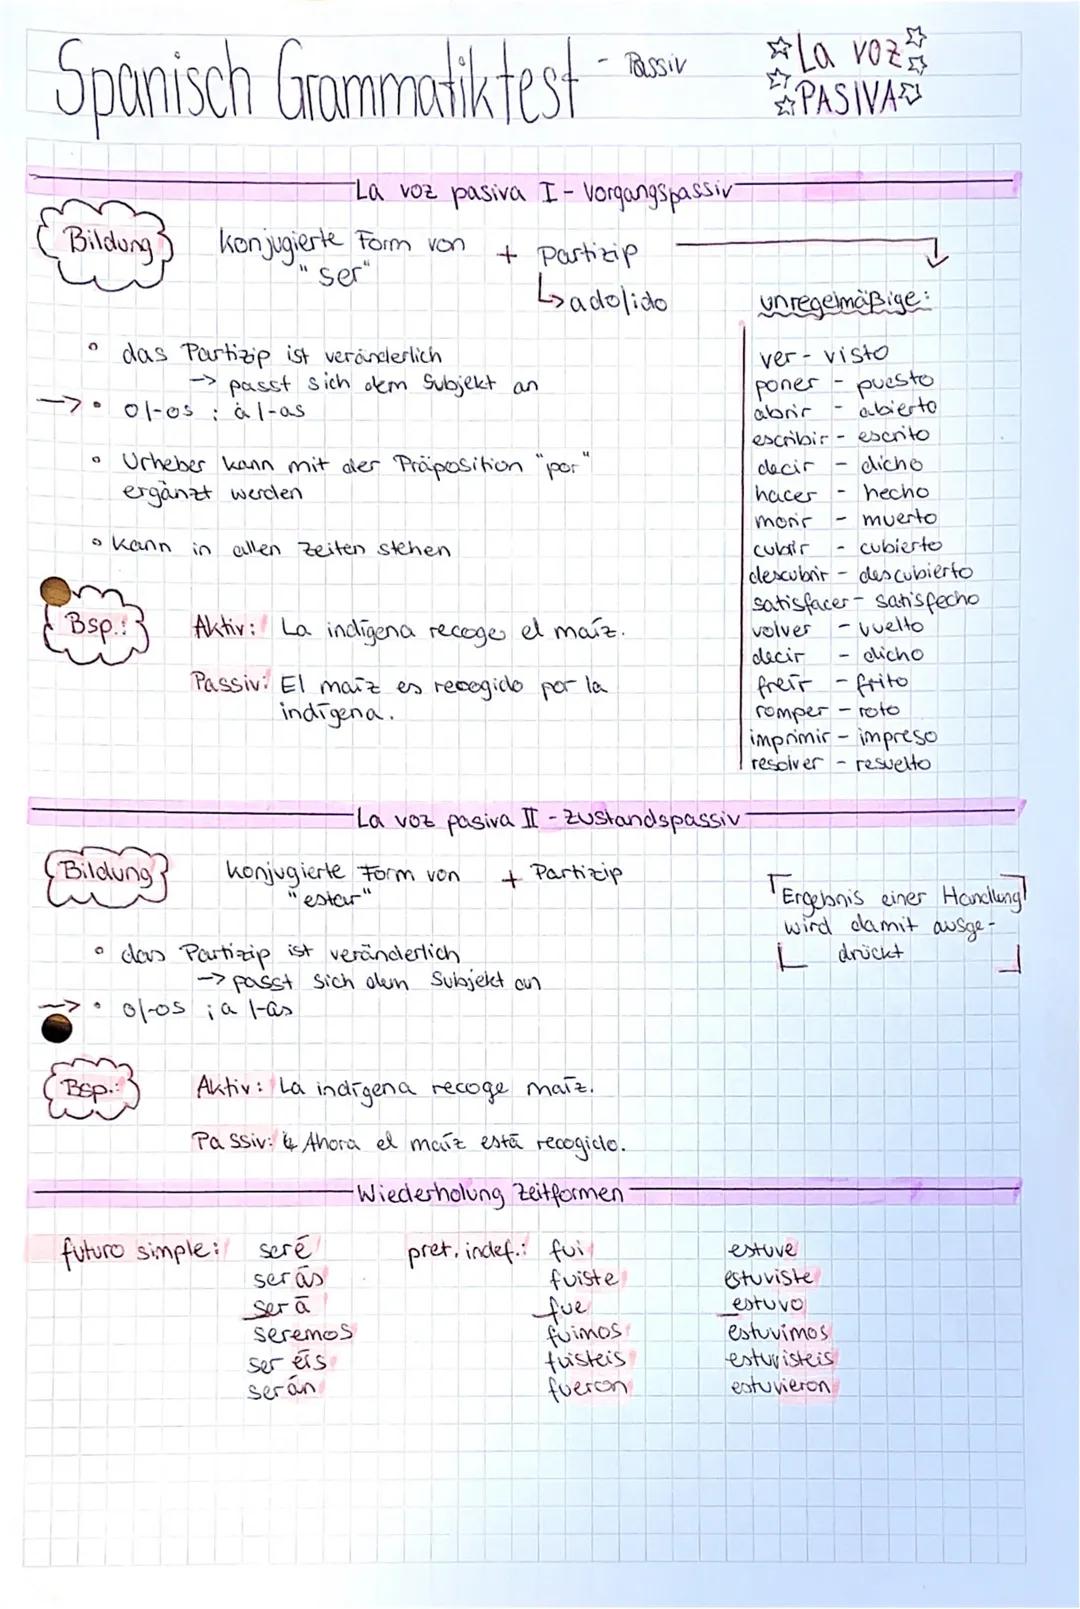 Spanisch Grammatiktest - Passiv
La voz
PASIVA
La voz pasiva I - Vorgangspassiv
Bildung
konjugierte Form von + Partizip
"ser"
↳ ado/ido
unregelmäßige:
• das Partizip ist veränderlich
-> passt sich dem Subjekt an
-> • o/-os ; a/-as
• Urheber kann mit der Präposition "por"
ergänzt werden
• kann in allen Zeiten stehen
ver - visto
poner - puesto
abrir - abierto
escribir - escrito
decir - dicho
hacer - hecho
morir - muerto
cubrir - cubierto
descubrir - descubierto
satisfacer - satisfecho
volver - vuelto
decir - dicho
freír - frito
romper - roto
imprimir - impreso
resolver - resuelto
Bsp.:
Aktiv: La indígena recoge el maíz.
Passiv: El maíz es recogido por la
indígena.
La voz pasiva II - Zustandspassiv
Bildung
konjugierte Form von + Partizip
"estar"
Ergebnis einer Handlung
wird damit ausge-
drückt
• das Partizip ist veränderlich
-> passt sich dem Subjekt an
-> • o/-os ; a/-as
Bsp.:
Aktiv: La indígena recoge maíz.
Passiv: ↳ Ahora el maíz está recogido.
Wiederholung Zeitformen
futuro simple: seré pret. indef.: fui estuve
serás fuiste estuviste
será fue estuvo
seremos fuimos estuvimos
seréis fuisteis estuvisteis
serán fueron estuvieron